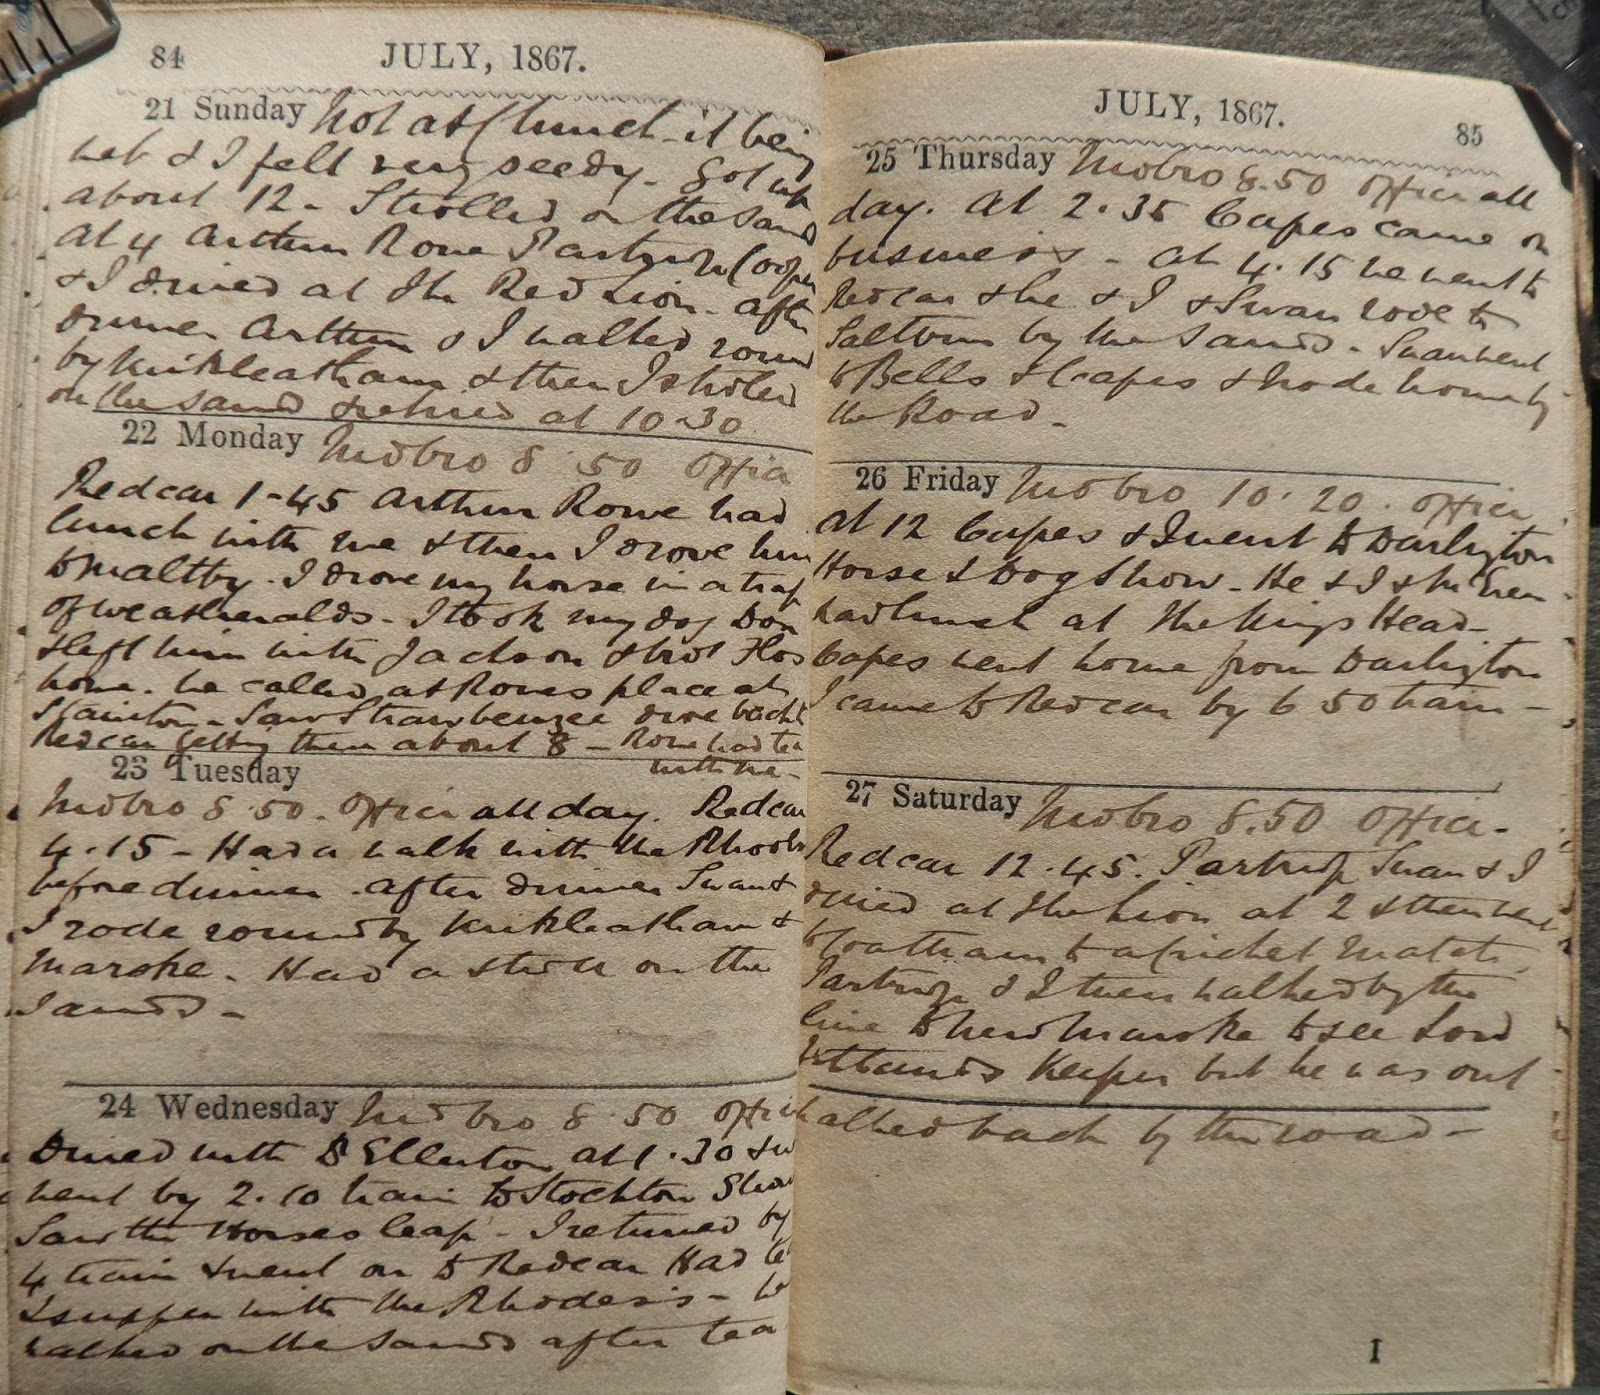 84
JULY, 1867.
21 Sunday Not at Church - it being
wet & I felt very seedy - Got up
about 12 - Strolled on the Sands
At 4 Arthur Rowe Partridge Cooper
& I dined at the Red Lion. After
dinner Arthur & I walked round
by Kirkleatham & then I strolled
on the sands & retired at 10-30
22 Monday Midbro 8.50 Office
Redcar 1-45 Arthur Rowe had
lunch with me & then I drove him
to Maltby. I drove my horse in a trap
of Weatheralds - I took my dog Don
& left him with Jackson & brot
home. We called at Rowes place at
Stainton - Saw Strawbenzee drove back to
Redcar getting there about 8 - Rowe had tea
with me -
23 Tuesday
Midbro 8.50. Office all day. Redcar
4.15 - Had a walk with the Rhodes
before dinner. After dinner Swan &
I rode round by Kirkleatham &
Marske. Had a stroll on the
Sands -
24 Wednesday Midbro 8.50 Office
Dined with Ellerton at 1.30 & we
went by 2.10 train to Stockton Show
Saw the Horses leap - I returned by
4 train & went on to Redcar Had tea
& supper with the Rhodes's - We
walked on the sands after tea
JULY, 1867.
85
25 Thursday Midbro 8.50 Office all
day. At 2.35 Capes came on
business - at 4.15 we went to
Redcar & he & I & Swan rode to
Saltburn by the Sands - Swan went
to Bells & Capes & I rode home by
the Road -
26 Friday Midbro 10.20. Office
At 12 Capes & I went to Darlington
Horse & Dog Show - He & I &
had lunch at The Kings Head -
Capes went home from Darlington
I came to Redcar by 6 50 train -
27 Saturday Midbro 8.50 Office -
Redcar 12.45. Partridge Swan & I
dined at the Lion at 2 & then went
to Coatham to a Cricket Match
Partridge & I then walked by the
line to New Marske to see Lord
Zetlands Keeper but he was out
walked back by the road -
I